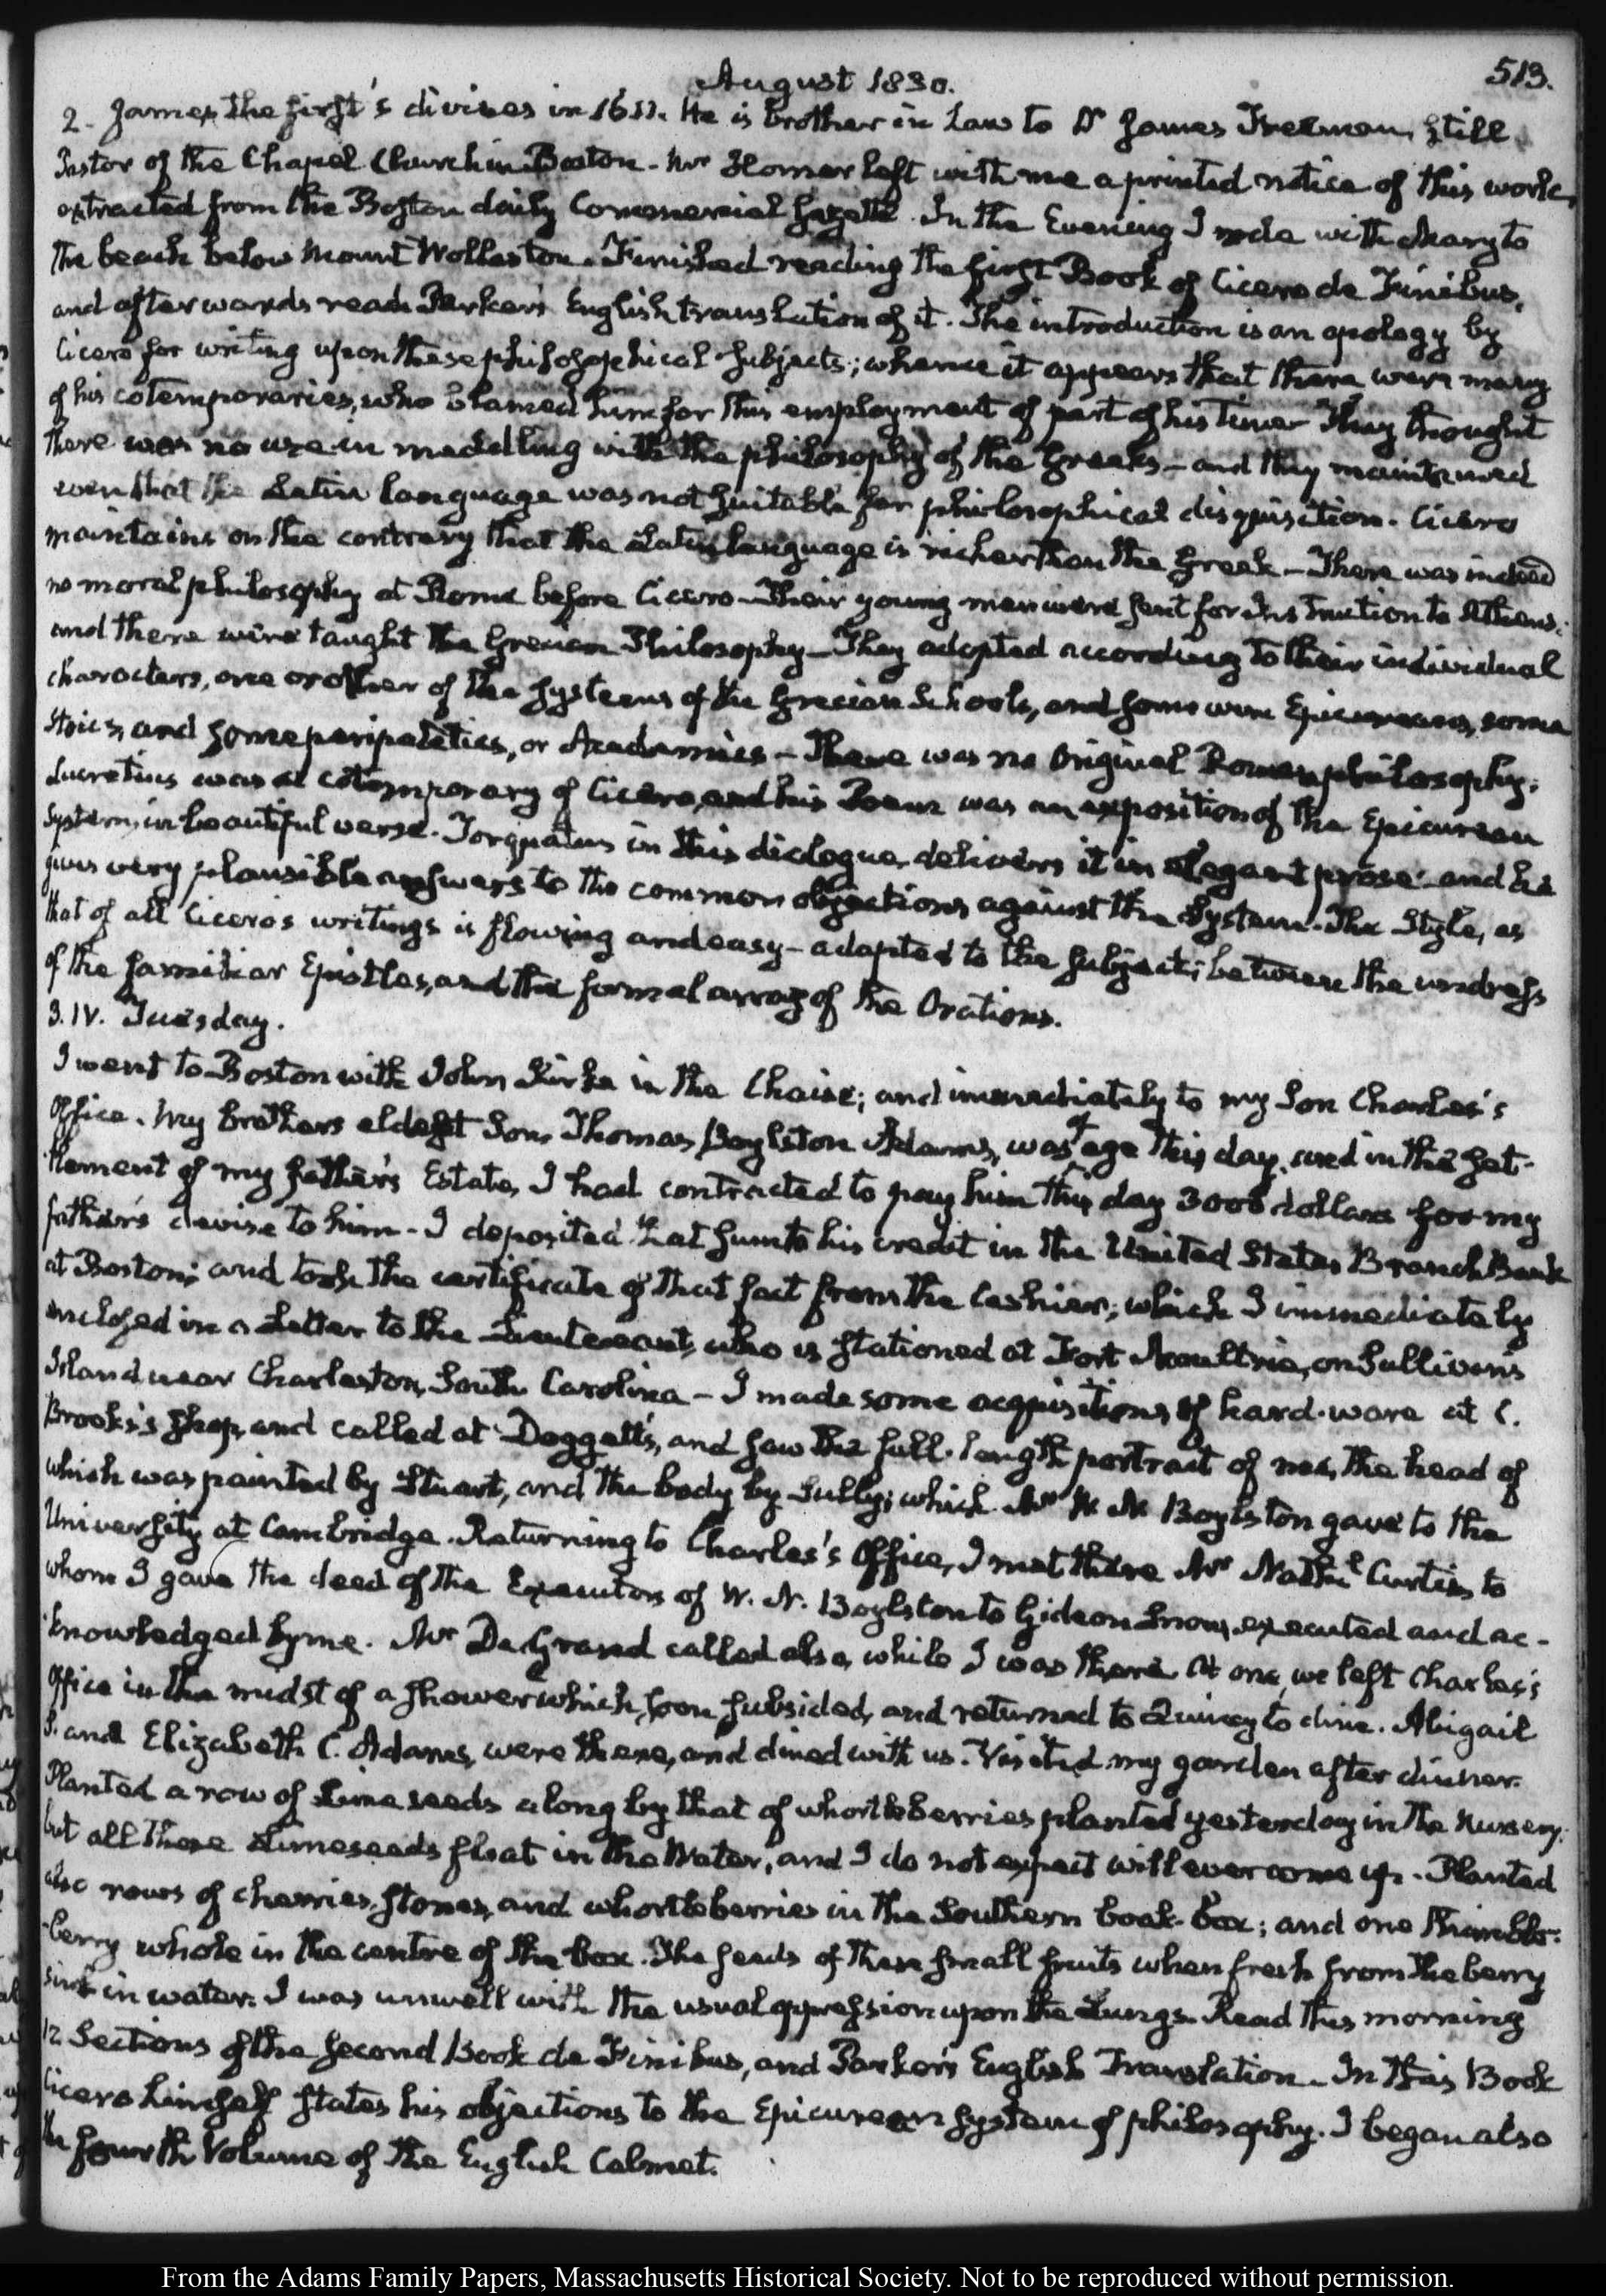 August 1830.
513.
2. James the first's divines in 1611. He is brother in Law to Dr James Freeman, still
Pastor of the Chapel Church in Boston. Mr Homer left with me a printed notice of this work,
extracted from the Boston daily Commercial Gazette. In the Evening I rode with Mary to
the beach below Mount Wollaston. Finished reading the first Book of Cicero de Finibus,
and afterwards read Parker's English translation of it. The introduction is an apology by
Cicero for writing upon these philosophical subjects; whence it appears that there were many
of his cotemporaries, who blamed him for this employment of part of his time. They thought
there was no use in meddling with the philosophy of the Greeks – and they maintained
even that the Latin language was not suitable for philosophical disquisition. Cicero
maintains on the contrary that the Latin language is richer than the Greek – There was indeed
no moral philosophy at Rome before Cicero – Their young men were sent for Instruction to Athens;
and there were taught the Grecian Philosophy – They adopted according to their individual
characters, one or other of the systems of the Grecian Schools, and some were Epicureans, some
Stoics, and some peripatetics, or Academics – There was no original Roman philosophy.
Lucretius was a cotemporary of Cicero, and his Poem was an exposition of the Epicurean
System, in beautiful verse. Torquatus in this dialogue, delivers it in elegant prose and he
gives very plausible answers to the common objections against the System. The Style, as
that of all Cicero's writings is flowing and easy – adapted to the subject; between the undress
of the familiar Epistles, and the formal array of the Orations.
3. IV. Tuesday.
I went to Boston with John Kirke in the Chaise; and immediately to my Son Charles's
Office. My brother's eldest Son, Thomas Boylston Adams, was of age this day, and in the set-
tlement of my father's Estate, I had contracted to pay him this day 3000 dollars for my
father's devise to him – I deposited that sum to his credit in the United States Branch Bank
at Boston; and took the certificate of that fact from the Cashier; which I immediately
enclosed in a Letter to the Lieutenant, who is stationed at Fort Moultrie, on Sullivan's
Island near Charleston, South Carolina – I made some acquisitions of hard-ware at C.
Brooks's shop, and called at Doggett's, and saw the full-length portrait of me, the head of
which was painted by Stuart, and the body by Sully; which Mr W. N. Boylston gave to the
University at Cambridge. Returning to Charles's Office, I met there Mr Nathl Curtis, to
whom I gave the deed of the Executors of W. N. Boylston to Gideon Snow, executed and ac-
knowledged by me. Mr De Grand called also, while I was there. At one, we left Charles's
Office in the midst of a shower which soon subsided, and returned to Quincy to dine. Abigail
S. and Elizabeth C. Adams, were there, and dined with us. Visited my garden after dinner.
Planted a row of Lime seeds along by that of whortleberries planted yesterday in the Nursery;
but all these Lime seeds float in the Water, and I do not expect will ever come up. Planted
also rows of cherries, stones, and whortleberries in the Southern book-box; and one thimble-
berry whole in the centre of the box. The seeds of these small fruits when fresh from the berry
sink in water. I was unwell with the usual oppression upon the Lungs. Read this morning
12 Sections of the second Book de Finibus, and Parker's English Translation. In this Book
Cicero himself states his objections to the Epicurean system of philosophy. I began also
the fourth Volume of the English Calmet.
From the Adams Family Papers, Massachusetts Historical Society. Not to be reproduced without permission.